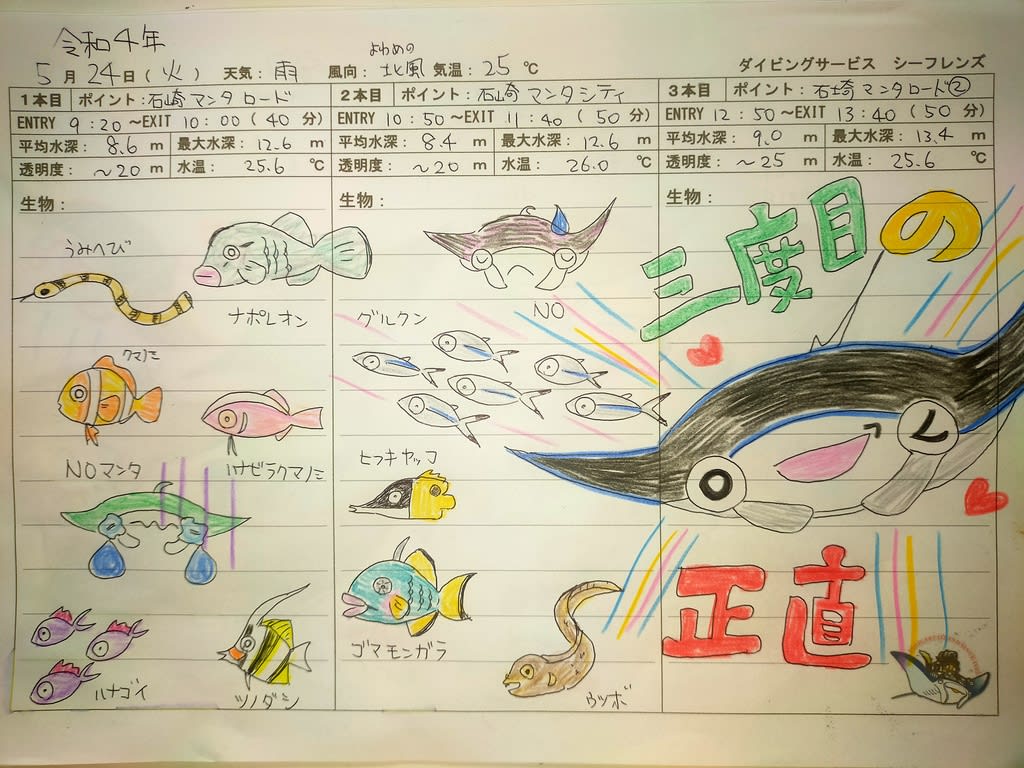 令和4年
よわめの
5月24日(火) 天気:雨 風向:北風 気温:25℃ ダイビングサービス シーフレンズ
1本目 ポイント:石崎マンタロード
ENTRY 9:20~EXIT 10:00(40分)
平均水深:8.6m 最大水深:12.6m
透明度:~20m 水温:25.6℃
生物:
うみへび
ナポレオン
クマノミ
NOマンタ
ハナビラクマノミ
ハナゴイ
ツノダシ
2本目 ポイント:石崎マンタシティ
ENTRY 10:50~EXIT 11:40(50分)
平均水深:8.4m 最大水深:12.6m
透明度:~20m 水温:26.0℃
生物:
NO
グルクン
ヒフキヤッコ
ゴマモンガラ
ウツボ
3本目 ポイント:石崎マンタロード②
ENTRY 12:50~EXIT 13:40(50分)
平均水深:9.0m 最大水深:13.4m
透明度:~25m 水温:25.6℃
生物:
三度目の
正直